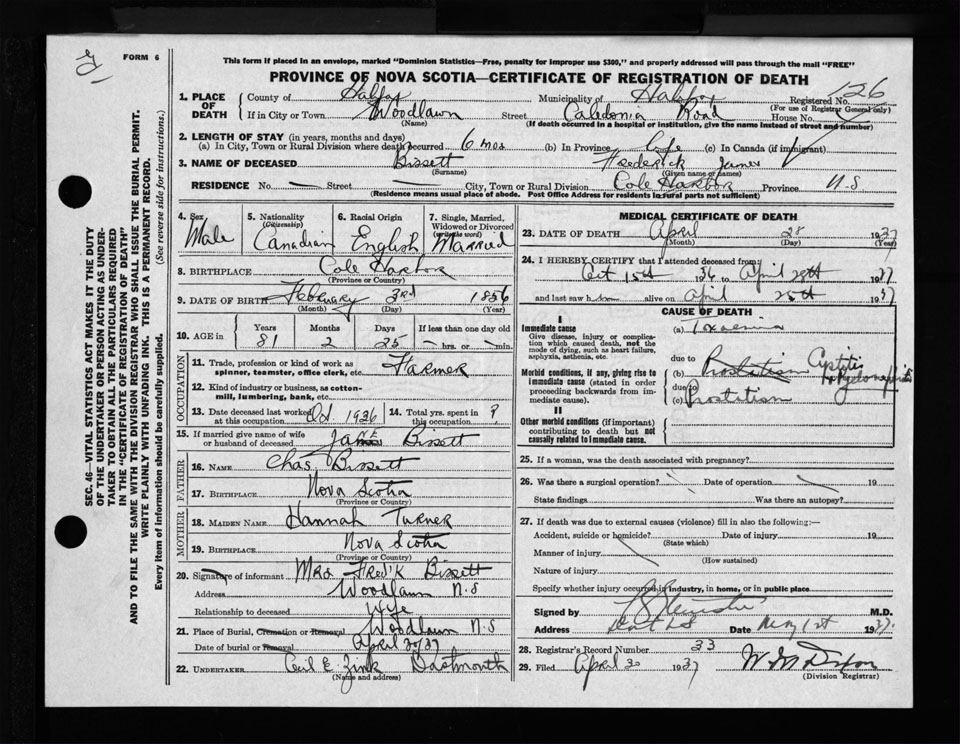 FORM 6
This form if placed in an envelope, marked "Dominion Statistics—Free, penalty for improper use $300," and properly addressed will pass through the mail "FREE"
PROVINCE OF NOVA SCOTIA—CERTIFICATE OF REGISTRATION OF DEATH
126
1. PLACE OF DEATH County of Halifax Municipality of Halifax Registered No.
(For use of Registrar General only)
If in City or Town Woodlawn Street Caledonia Road House No.
(Name) (If death occurred in a hospital or institution, give the name instead of street and number)
2. LENGTH OF STAY (in years, months and days)
(a) In City, Town or Rural Division where death occurred 6 mos (b) In Province Life (c) In Canada (if immigrant)
3. NAME OF DECEASED Bissett Frederick James
(Surname) (Given name or names)
RESIDENCE No. — Street — City, Town or Rural Division Cole Harbor Province N.S
(Residence means usual place of abode. Post Office Address for residents in rural parts not sufficient)
SEC. 46—VITAL STATISTICS ACT MAKES IT THE DUTY
OF THE UNDERTAKER OR PERSON ACTING AS UNDER-
TAKER TO OBTAIN ALL THE PARTICULARS REQUIRED
IN THE "CERTIFICATE OF REGISTRATION OF DEATH"
AND TO FILE THE SAME WITH THE DIVISION REGISTRAR WHO SHALL ISSUE THE BURIAL PERMIT.
WRITE PLAINLY WITH UNFADING INK. THIS IS A PERMANENT RECORD.
Every item of information should be carefully supplied. (See reverse side for instructions.)
4. Sex Male
5. Nationality (Citizenship) Canadian
6. Racial Origin English
7. Single, Married, Widowed or Divorced (write the word) Married
8. BIRTHPLACE Cole Harbor
(Province or Country)
9. DATE OF BIRTH February 3rd 1856
(Month) (Day) (Year)
10. AGE in Years Months Days If less than one day old
81 2 25 — hrs. or — min.
OCCUPATION
11. Trade, profession or kind of work as spinner, teamster, office clerk, etc. Farmer
12. Kind of industry or business, as cotton-mill, lumbering, bank, etc.
13. Date deceased last worked at this occupation Oct. 1936
14. Total yrs. spent in this occupation ?
15. If married give name of wife or husband of deceased Jane Bissett
FATHER
16. NAME Chas Bissett
17. BIRTHPLACE Nova Scotia
(Province or Country)
MOTHER
18. MAIDEN NAME Hannah Turner
19. BIRTHPLACE Nova Scotia
(Province or Country)
20. Signature of informant Mrs Fred'k Bissett
Address Woodlawn N.S
Relationship to deceased Wife
21. Place of Burial, Cremation or Removal Woodlawn N.S
Date of burial or Removal April 30/37
22. UNDERTAKER Cecil E. Zink Dartmouth
(Name and address)
MEDICAL CERTIFICATE OF DEATH
23. DATE OF DEATH April 28 1937
(Month) (Day) (Year)
24. I HEREBY CERTIFY that I attended deceased from
Oct 15th 36 to April 28th 1937
and last saw him alive on April 25th 1937
CAUSE OF DEATH
I
Immediate cause
Give disease, injury or complication which caused death, not the mode of dying, such as heart failure, asphyxia, asthenia, etc.
(a) Toxaemia
due to
Morbid conditions, if any, giving rise to immediate cause (stated in order proceeding backwards from immediate cause).
(b) Prostatism Cystitis
due to
(c) Prostatism
II
Other morbid conditions (if important) contributing to death but not causally related to immediate cause.
25. If a woman, was the death associated with pregnancy?
26. Was there a surgical operation? Date of operation 19
State findings Was there an autopsy?
27. If death was due to external causes (violence) fill in also the following:—
Accident, suicide or homicide? Date of injury 19
(State which)
Manner of injury
(How sustained)
Nature of injury
Specify whether injury occurred in industry, in home, or in public place
Signed by M.D.
Address Date May 1st 1937.
28. Registrar's Record Number 33
29. Filed April 30 1937
(Division Registrar)